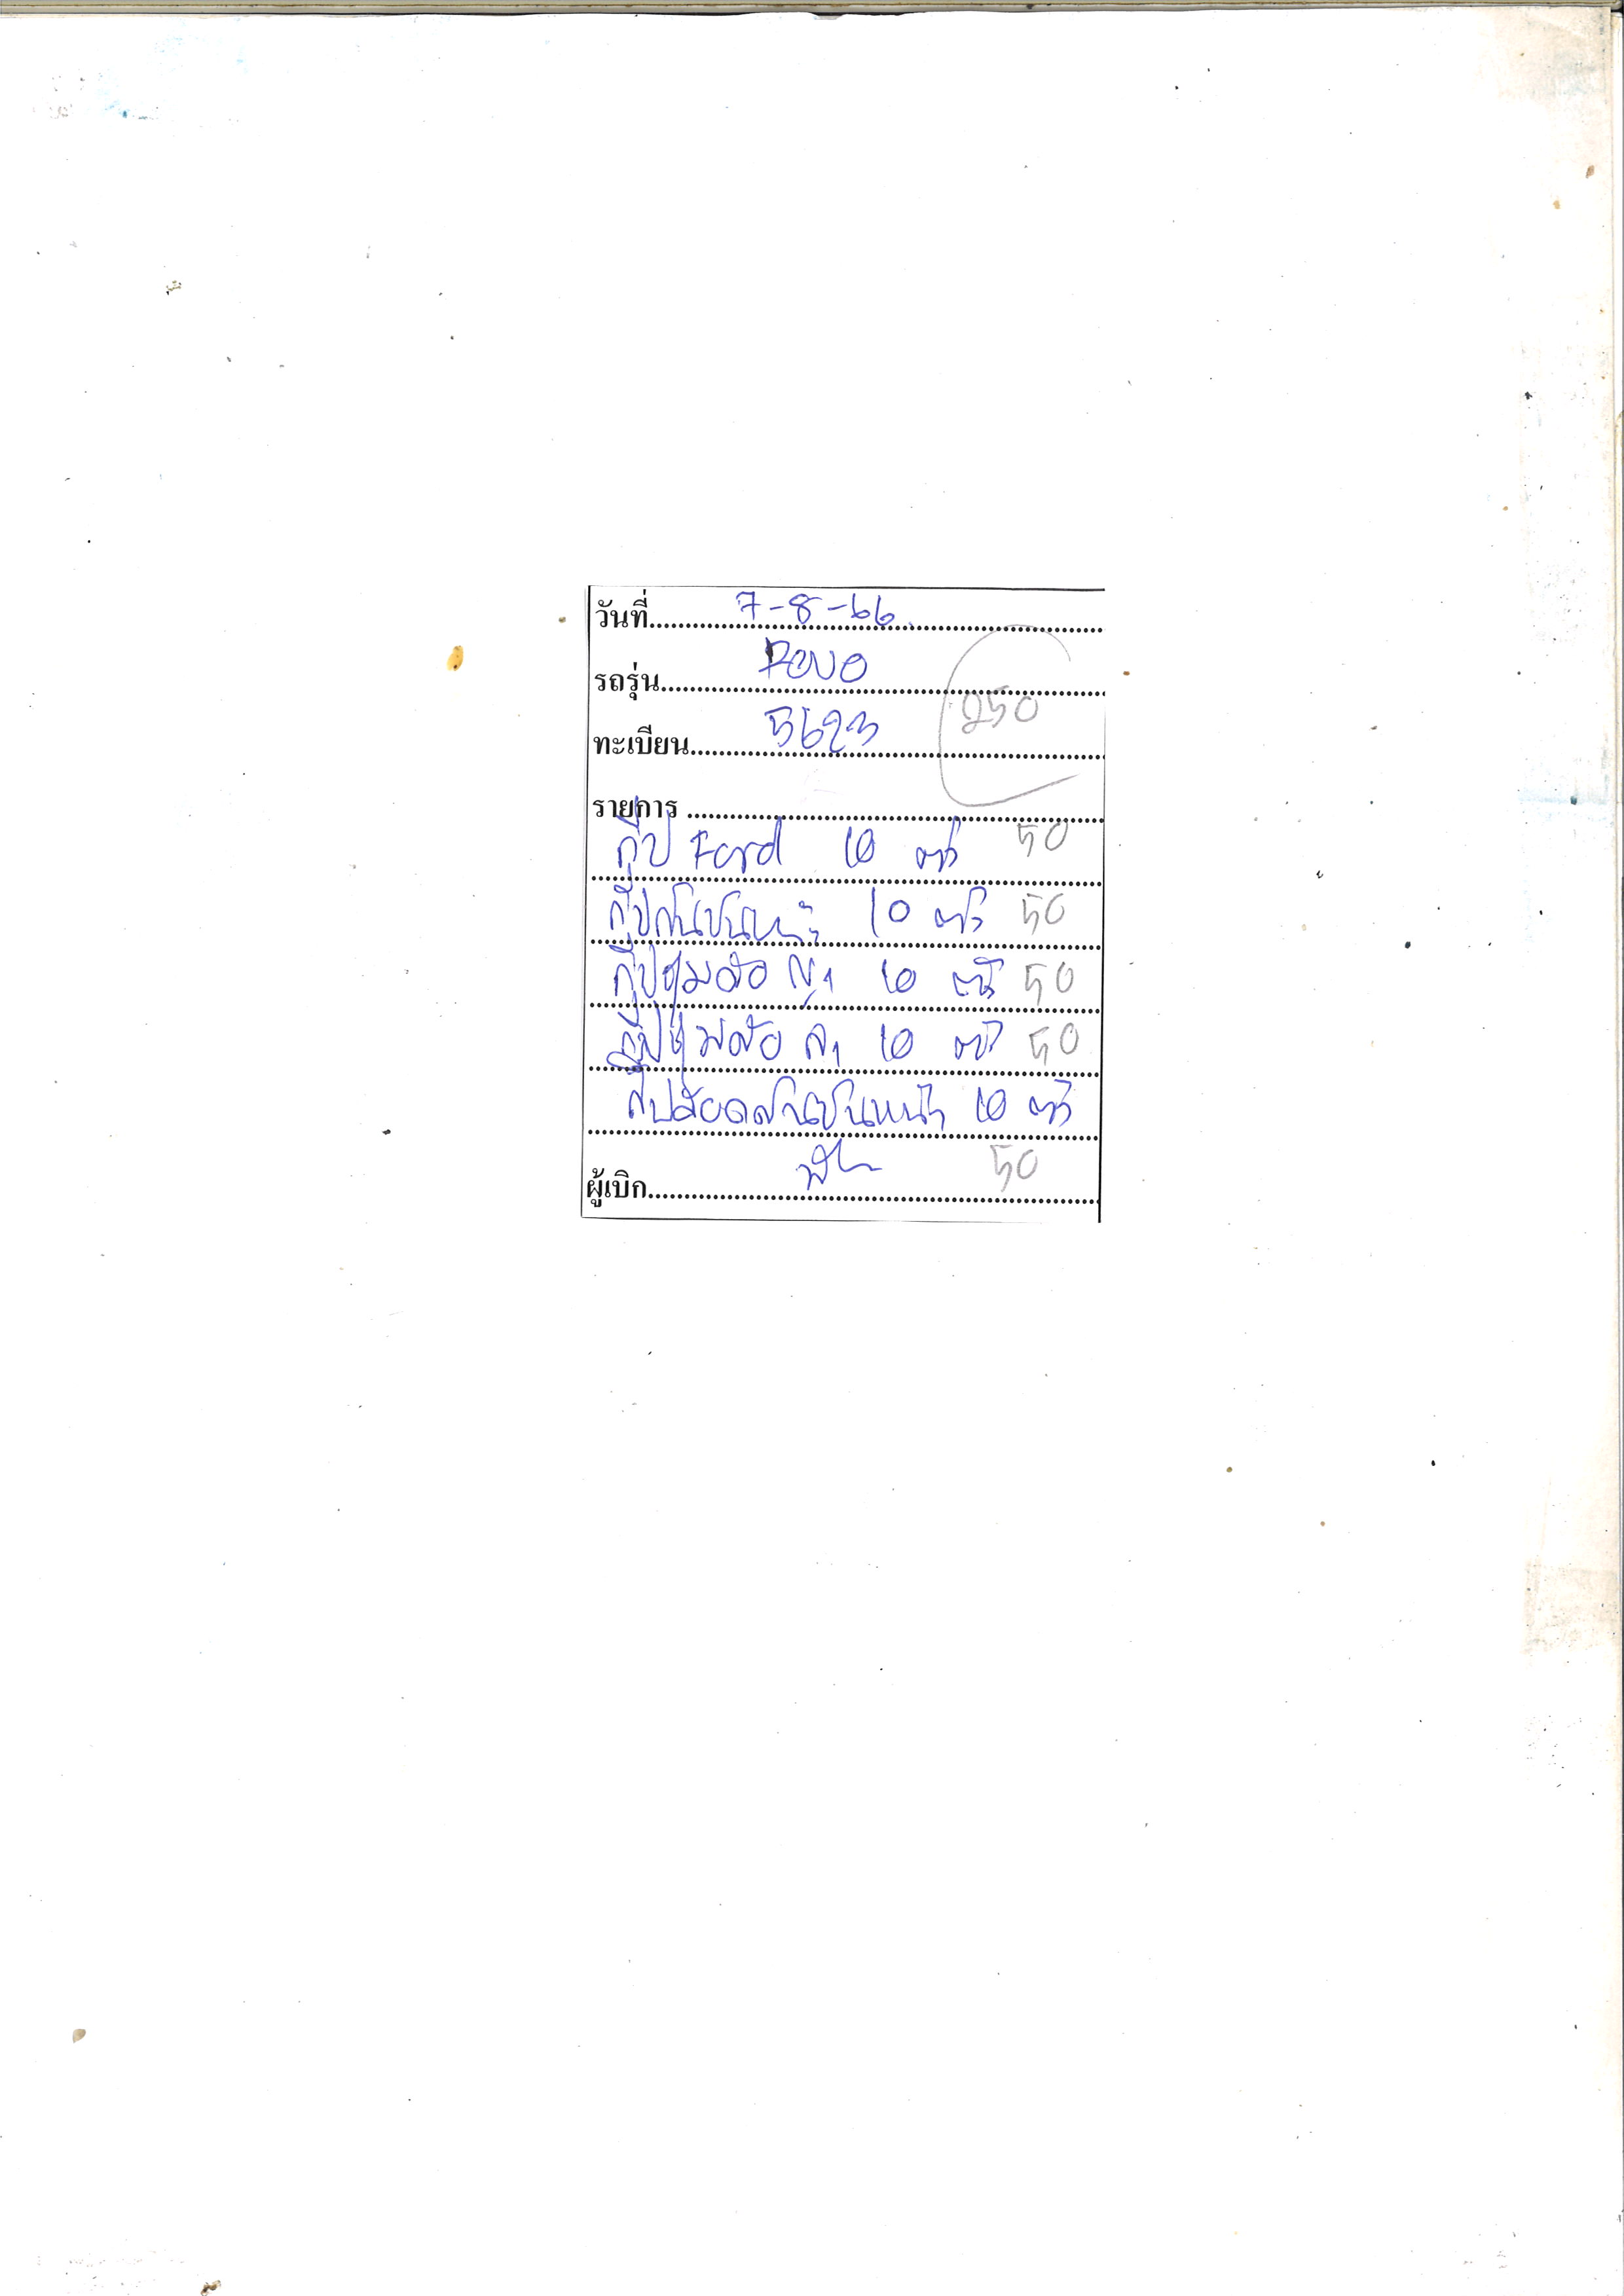 วันที่ 7-8-66
รถรุ่น REVO
250
ทะเบียน 5623
รายการ
กิ๊ป Ford 10 ตัว 50
กิ๊ปกันชนหน้า 10 ตัว 50
กิ๊ปซุ้มล้อ 10 ตัว 50
กิ๊ปซุ้มล้อ 10 ตัว 50
กิ๊ปล็อคกันชนหน้า 10 ตัว
50
ผู้เบิก